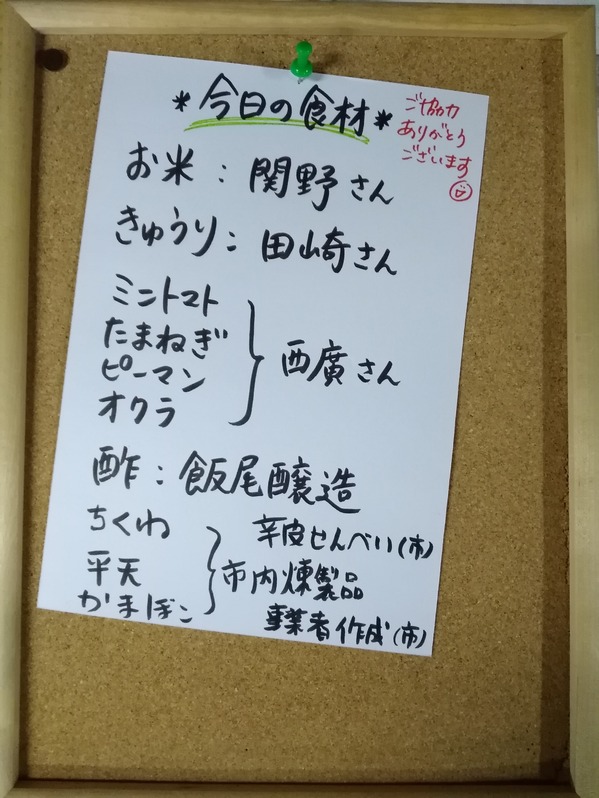 *今日の食材*
ご協力
ありがとう
ございます
お米：関野さん
きゅうり：田崎さん
ミニトマト
たまねぎ
ピーマン
オクラ
西廣さん
酢：飯尾醸造
ちくわ
平天
かまぼこ
辛皮せんべい(市)
市内煉製品
事業者作成(市)